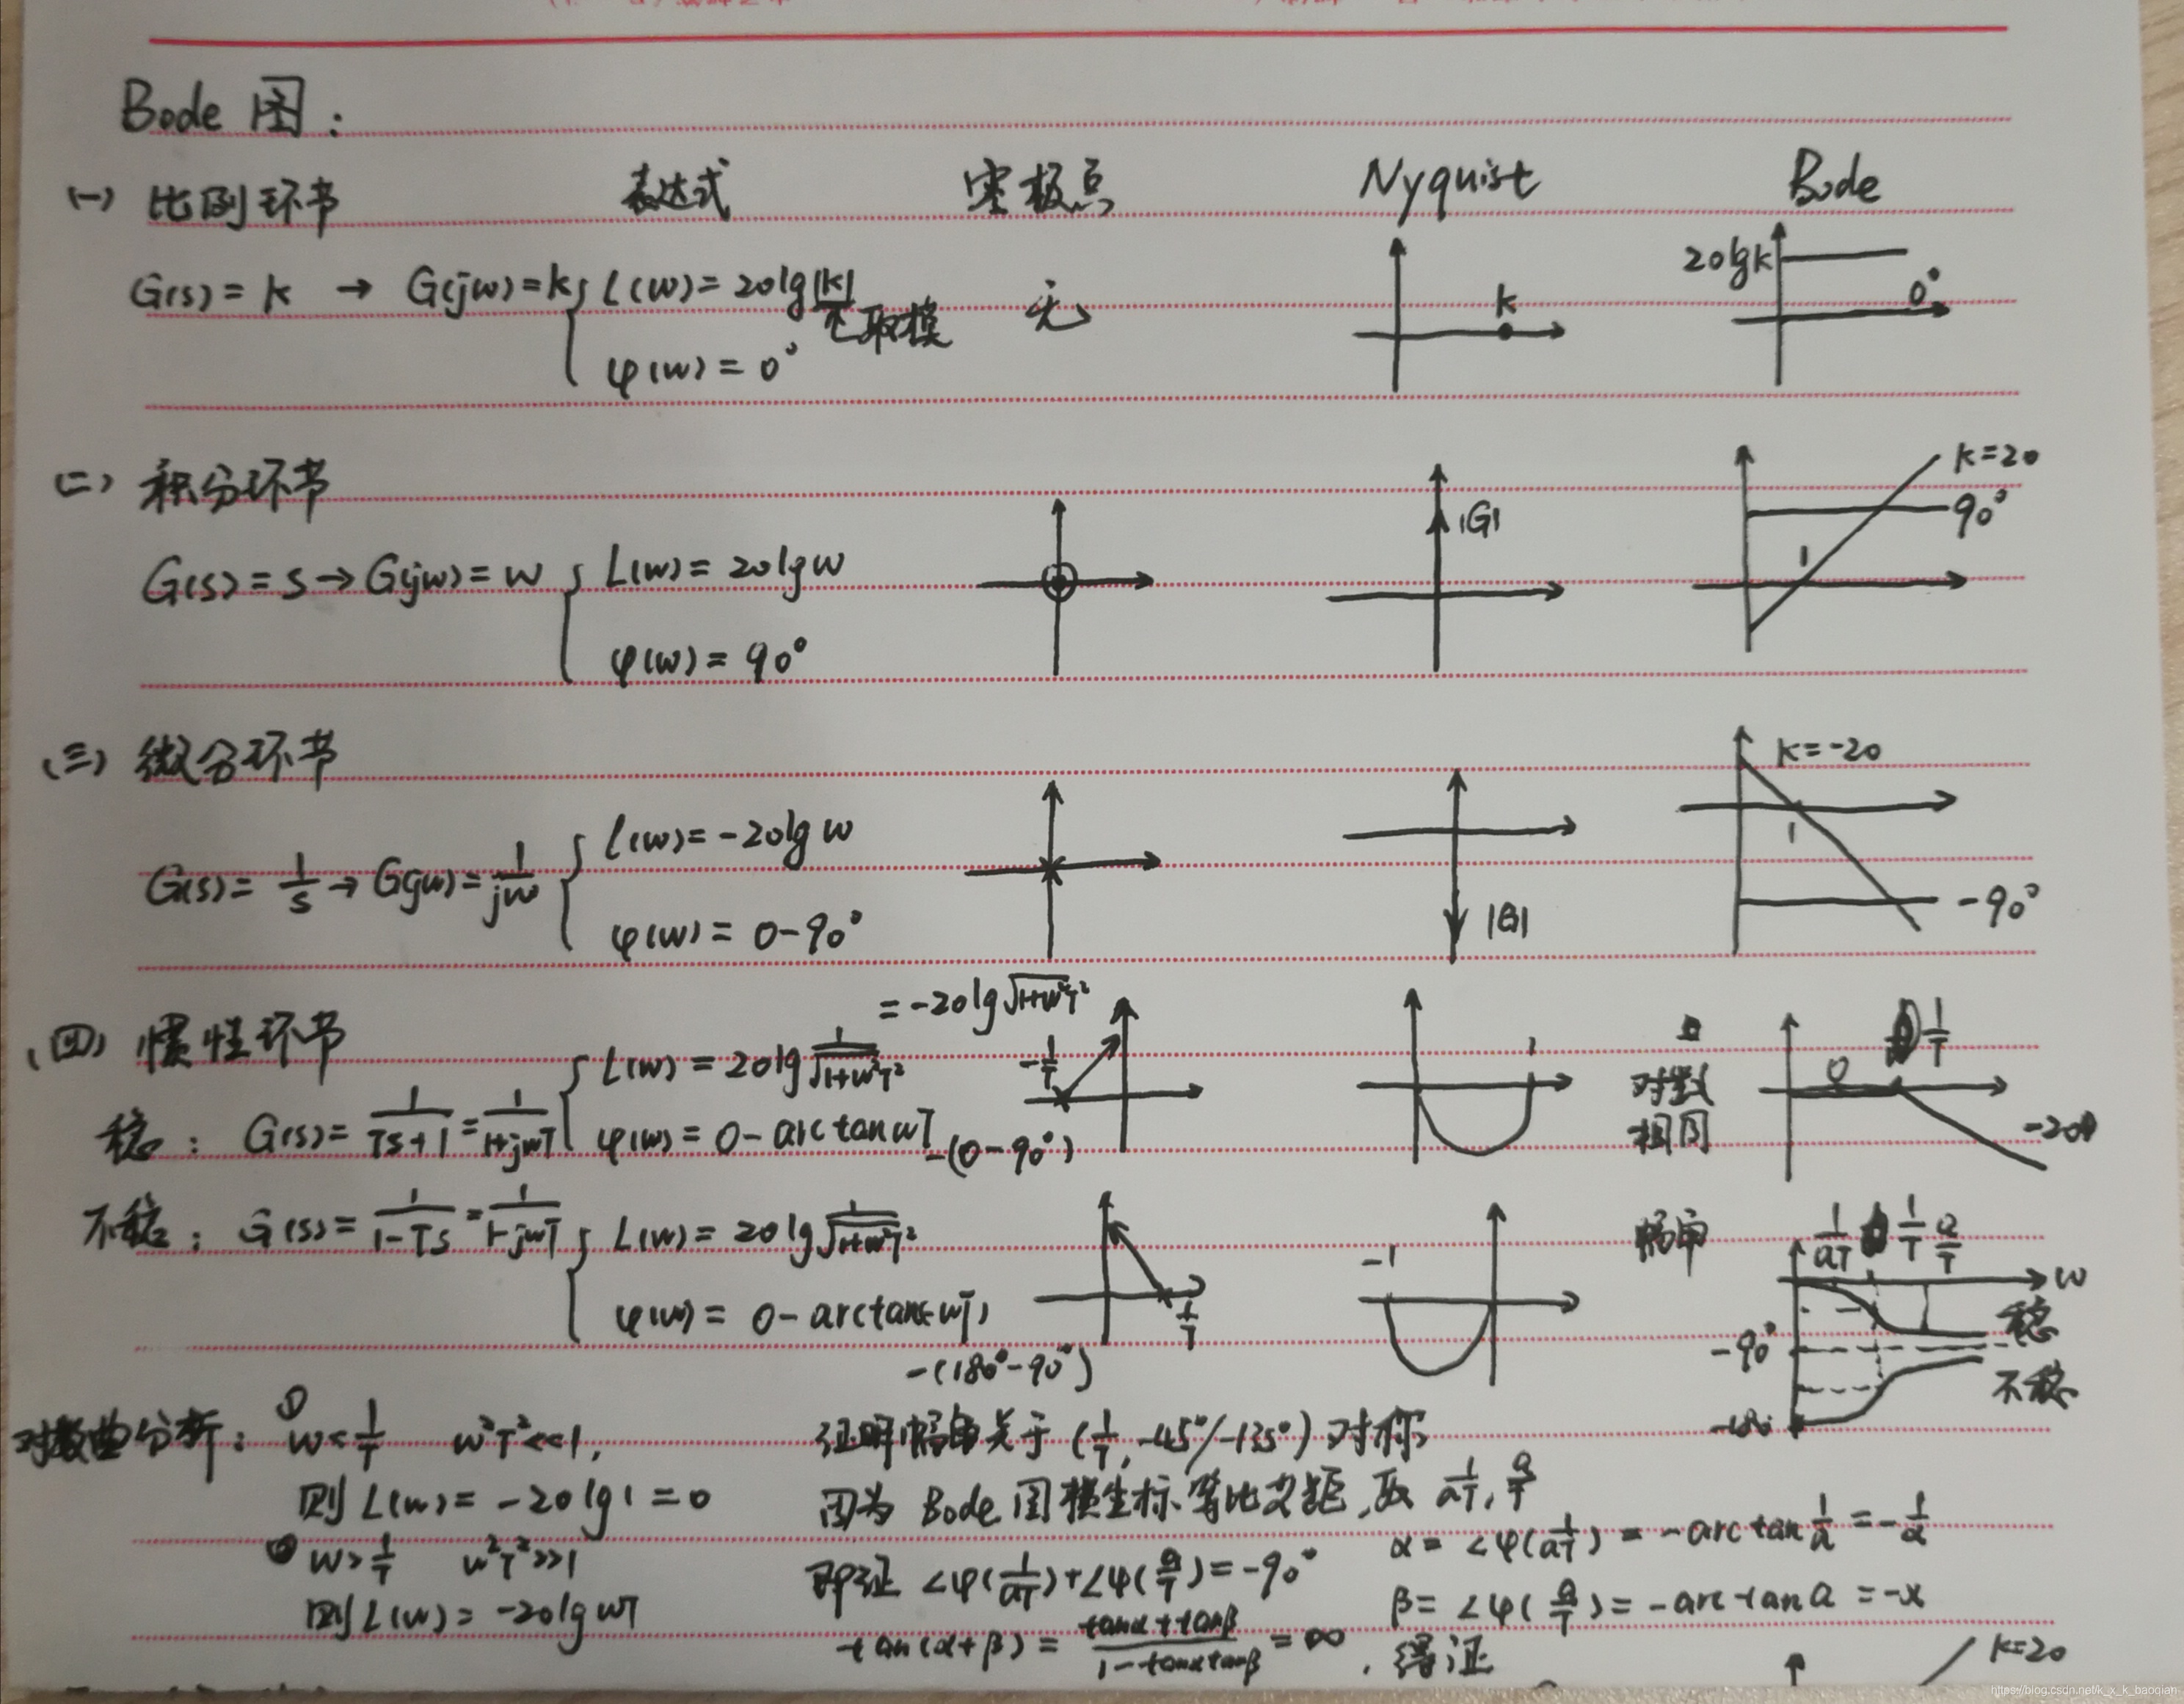 Bode 图:
(一) 比例环节 表达式 零极点 Nyquist Bode
G(s) = k → G(jw) = k { L(w) = 20lg|k| 取模
φ(w) = 0°
无
k
20lgk
0°
(二) 积分环节
G(s) = s → G(jw) = w { L(w) = 20lgw
φ(w) = 90°
|G|
k=20
90°
1
(三) 微分环节
G(s) = 1/s → G(jw) = 1/jw { L(w) = -20lg w
φ(w) = 0-90°
|G|
k=-20
1
-90°
(四) 惯性环节
= -20lg√1+w²T²
稳: G(s) = 1/Ts+1 = 1/1+jwT { L(w) = 20lg 1/√1+w²T²
φ(w) = 0 - arctanwT
-(0-90°)
-1/T
1
对数
相同
0
1/T
-20
不稳: G(s) = 1/1-Ts = 1/1-jwT { L(w) = 20lg 1/√1+w²T²
φ(w) = 0 - arctan(-wT)
-(180°-90°)
1/T
-1
1/aT 1/T a/T
w
稳
-90°
不稳
-180
对数曲分析: ① w<1/T w²T²<<1,
则 L(w) = -20lg1 = 0
w>1/T w²T²>>1
则 L(w) = -20lgwT
证明 关于 (1/T, -45°/-135°) 对称
因为 Bode 图横坐标等比 距, 取 1/aT, a/T
即证 ∠φ(1/aT)+∠φ(a/T) = -90°
tan(α+β) = tanα+tanβ/1-tanαtanβ = ∞, 得证
α = ∠φ(1/aT) = -arctan 1/a = -1/a
β = ∠φ(a/T) = -arctan a = -x
k=20
https://blog.csdn.net/k_x_k_baoqian